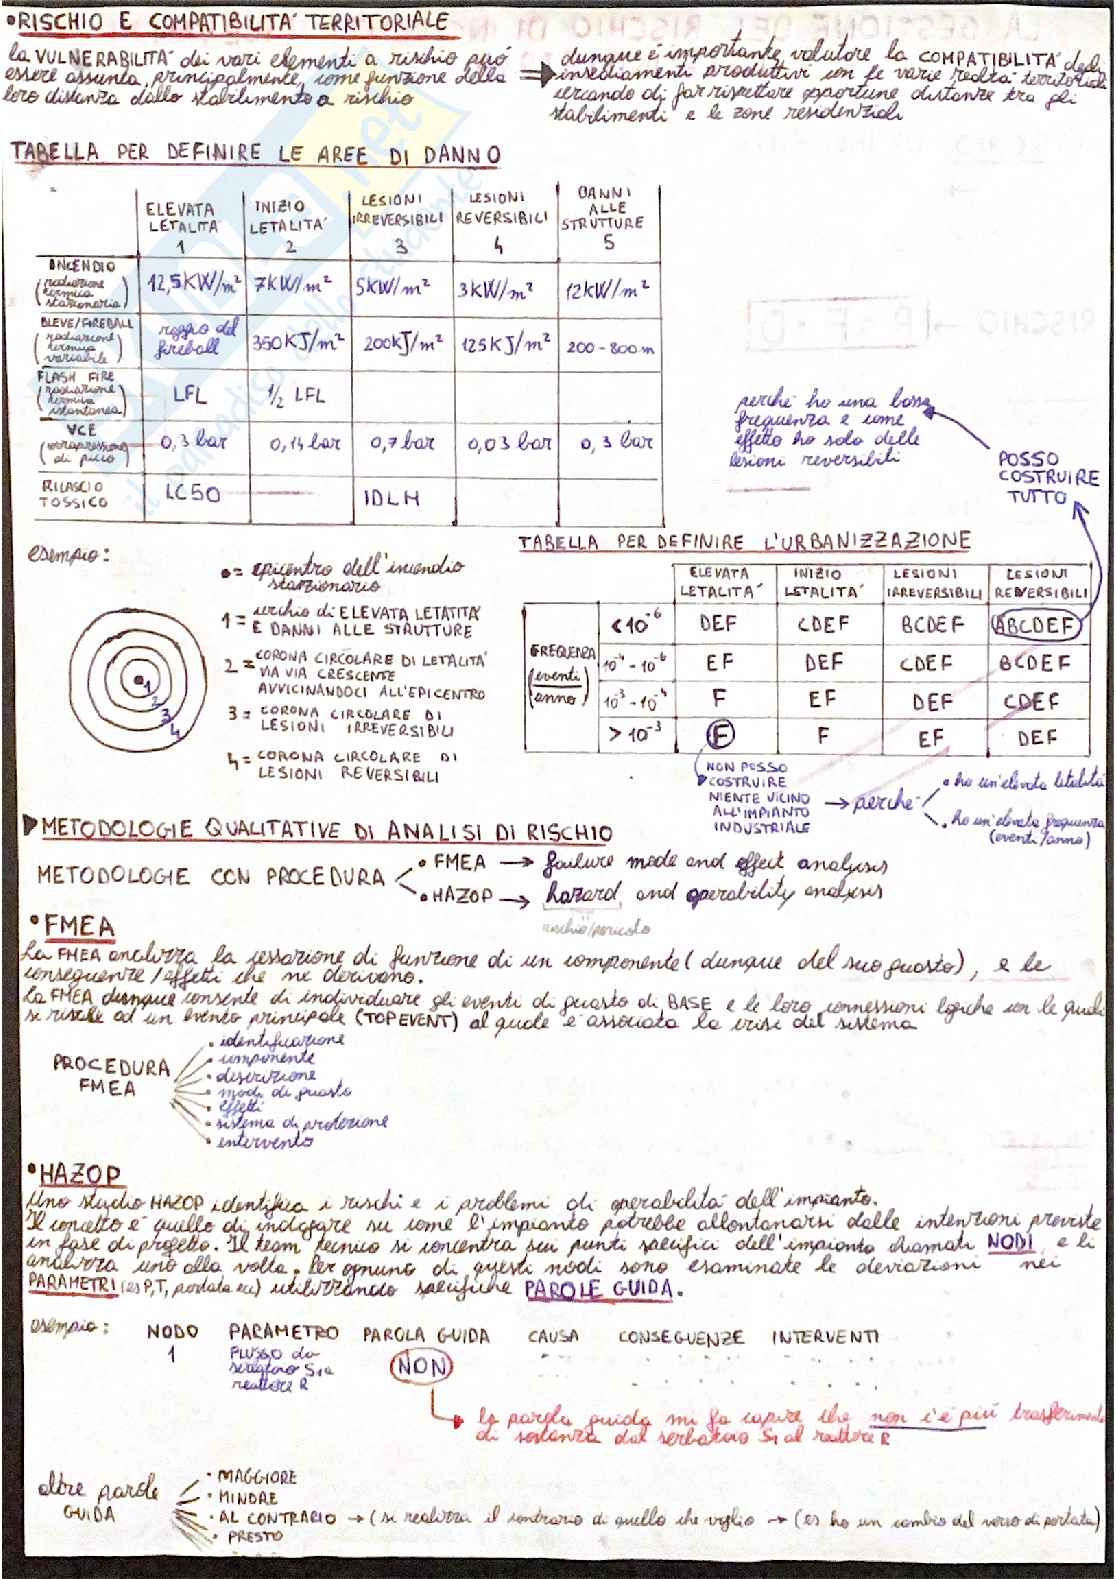 •RISCHIO E COMPATIBILITA' TERRITORIALE
la VULNERABILITA' dei vari elementi a rischio può
essere assunta, principalmente, come funzione della
loro distanza dallo stabilimento a rischio
dunque è importante valutare la COMPATIBILITA' degli
insediamenti produttivi con le varie realtà territoriali
cercando di far rispettare opportune distanze tra gli
stabilimenti e le zone residenziali
TABELLA PER DEFINIRE LE AREE DI DANNO
ELEVATA LETALITA' 1
INIZIO LETALITA' 2
LESIONI IRREVERSIBILI 3
LESIONI REVERSIBILI 4
DANNI ALLE STRUTTURE 5
INCENDIO (radiazione termica stazionaria) 12,5KW/m² 7KW/m² 5KW/m² 3KW/m² 12KW/m²
BLEVE/FIREBALL (radiazione termica variabile) raggio del fireball 350KJ/m² 200KJ/m² 125KJ/m² 200-800m
FLASH FIRE (radiazione termica istantanea) LFL 1/2 LFL
VCE (sovrapressione di picco) 0,3 bar 0,14 bar 0,7 bar 0,03 bar 0,3 bar
RILASCIO TOSSICO LC50 IDLH
perché ho una bassa
frequenza e come
effetto ho solo delle
lesioni reversibili
POSSO
COSTRUIRE
TUTTO
esempio:
•= epicentro dell'incendio
stazionario
1= cerchio di ELEVATA LETATITA'
E DANNI ALLE STRUTTURE
2= CORONA CIRCOLARE DI LETALITA'
VIA VIA CRESCENTE
AVVICINANDOCI ALL'EPICENTRO
3= CORONA CIRCOLARE DI
LESIONI IRREVERSIBILI
4= CORONA CIRCOLARE DI
LESIONI REVERSIBILI
1
2
3
4
TABELLA PER DEFINIRE L'URBANIZZAZIONE
ELEVATA LETALITA'
INIZIO LETALITA'
LESIONI IRREVERSIBILI
LESIONI REVERSIBILI
FREQUENZA (eventi/anno)
<10⁻⁶ DEF CDEF BCDEF ABCDEF
10⁻⁴-10⁻⁶ EF DEF CDEF BCDEF
10⁻³-10⁻⁴ F EF DEF CDEF
>10⁻³ F F EF DEF
NON POSSO
COSTRUIRE
NIENTE VICINO
ALL'IMPIANTO
INDUSTRIALE
→ perché
• ho un'elevata letalità
• ho un'elevata frequenza
(eventi/anno)
METODOLOGIE QUALITATIVE DI ANALISI DI RISCHIO
METODOLOGIE CON PROCEDURA
• FMEA → failure mode and effect analysis
• HAZOP → hazard and operability analysis
rischio/pericolo
•FMEA
La FMEA analizza la cessazione di funzione di un componente (dunque del suo guasto), e le
conseguenze/effetti che ne derivano.
La FMEA dunque consente di individuare gli eventi di guasto di BASE e le loro connessioni logiche con le quali
si risale ad un evento principale (TOP EVENT) al quale è associata la crisi del sistema
PROCEDURA
FMEA
• identificazione
• componente
• descrizione
• modi di guasto
• effetti
• sistema di protezione
• intervento
•HAZOP
Uno studio HAZOP identifica i rischi e i problemi di operabilità dell'impianto.
Il concetto è quello di indagare su come l'impianto potrebbe allontanarsi dalle intenzioni previste
in fase di progetto. Il team tecnico si concentra sui punti specifici dell'impianto chiamati NODI e li
analizza uno alla volta. Per ognuno di questi nodi sono esaminate le deviazioni nei
PARAMETRI (es P,T, portata ecc) utilizzando specifiche PAROLE GUIDA.
esempio: NODO PARAMETRO PAROLA GUIDA CAUSA CONSEGUENZE INTERVENTI
1
FLUSSO da
serbatoio S1 a
reattore R
NON
la parola guida mi fa capire che non c'è più trasferimento
di sostanza dal serbatoio S1 al reattore R
altre parole
GUIDA
• MAGGIORE
• MINORE
• AL CONTRARIO → (si realizza il contrario di quello che voglio → (es ho un cambio del verso di portata)
• PRESTO